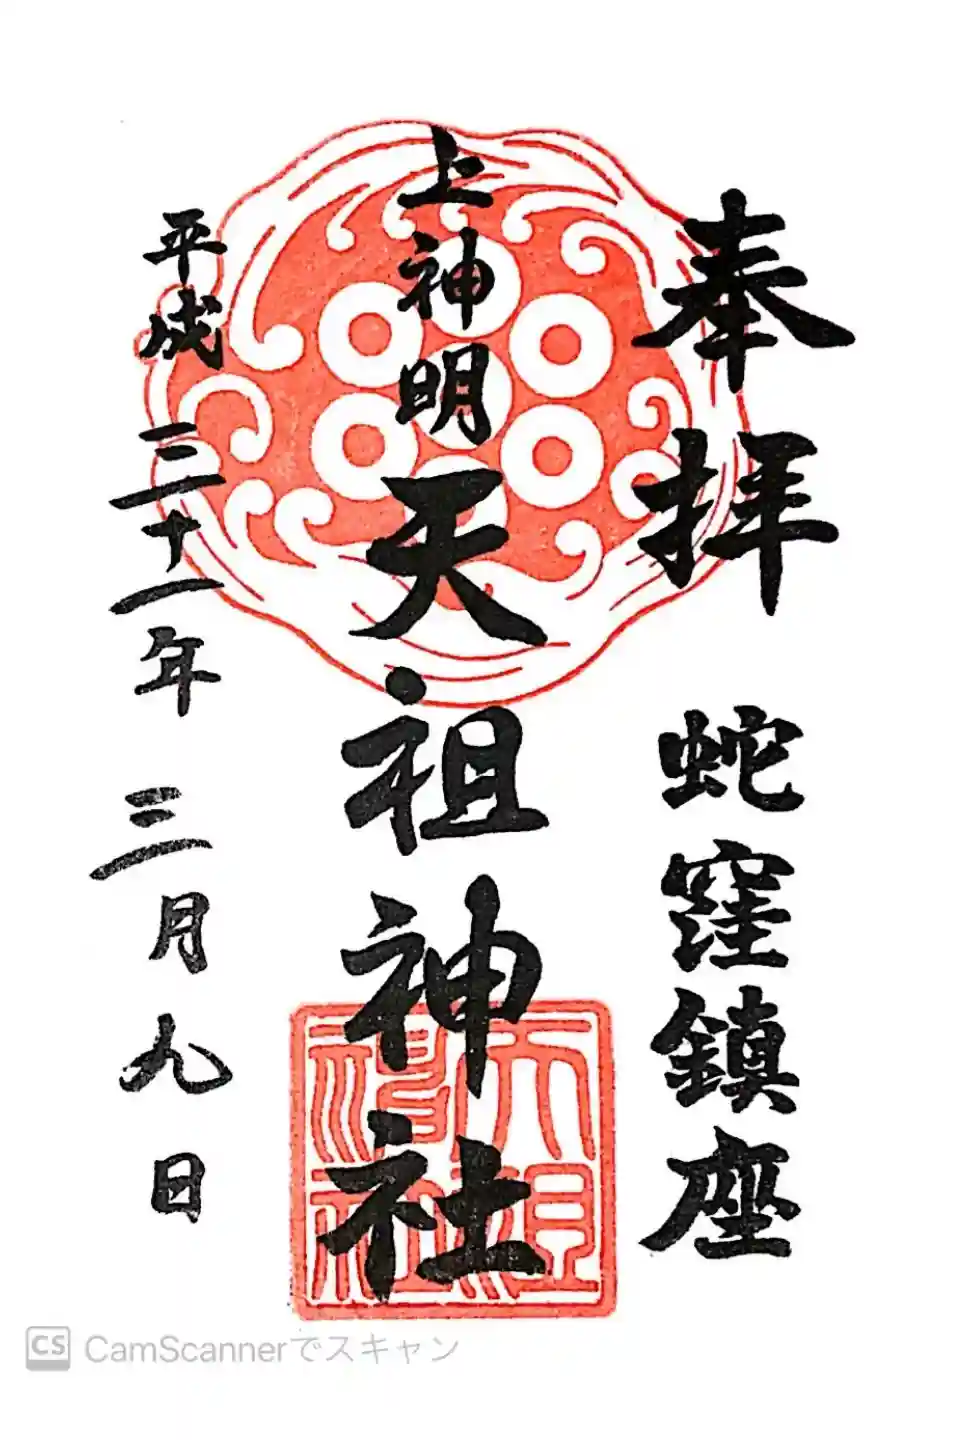 奉拝 蛇窪鎮座
上神明天祖神社
平成三十一年 三月九日
天祖神社
CS CamScannerでスキャン